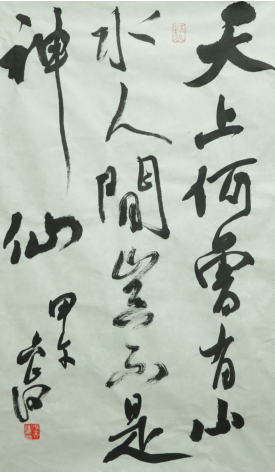 天上何曾有山
水人間豈不是
神仙
甲午